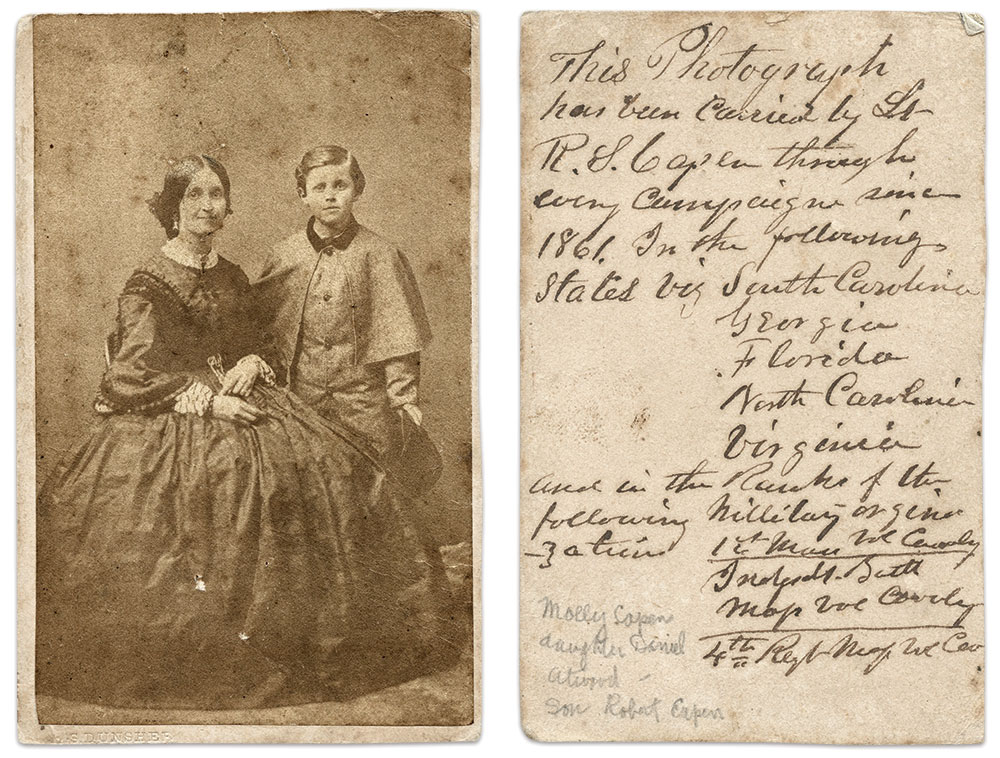 S. DUNSHEE
This Photograph
has been carried by Lt
R. S. Capen through
every Campaigne since
1861. In the following
States viz South Carolina
Georgia
Florida
North Carolina
Virginia
and in the Ranks of the
following Millitary orgini
-zations 1st Mass Vol Cavelry
Indepdt. Batt
Mass Vol Cavelry
4th Regt Mass Vol Cav
Molly Capen
daughter Daniel
Atwood -
Son Robert Capen